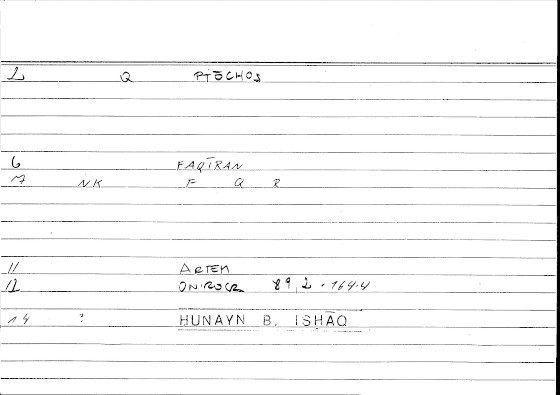 2 Q PTŌCHOS
6 FAQĪRAN
7 NK F Q R
11 ARTEM
12 ONIROCR 89,2 - 164.4
14 ? HUNAYN B. ISHĀQ